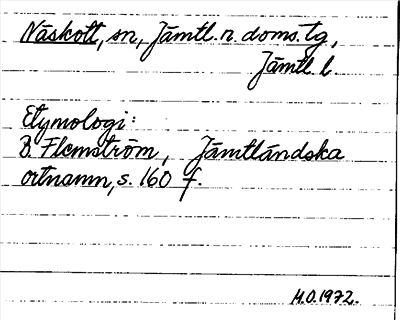 Näskott, sn, Jämtl. n. doms.tg,
Jämtl. l.
Etymologi:
B. Flemström, Jämtländska
ortnamn, s. 160 f.
M.O.1972.